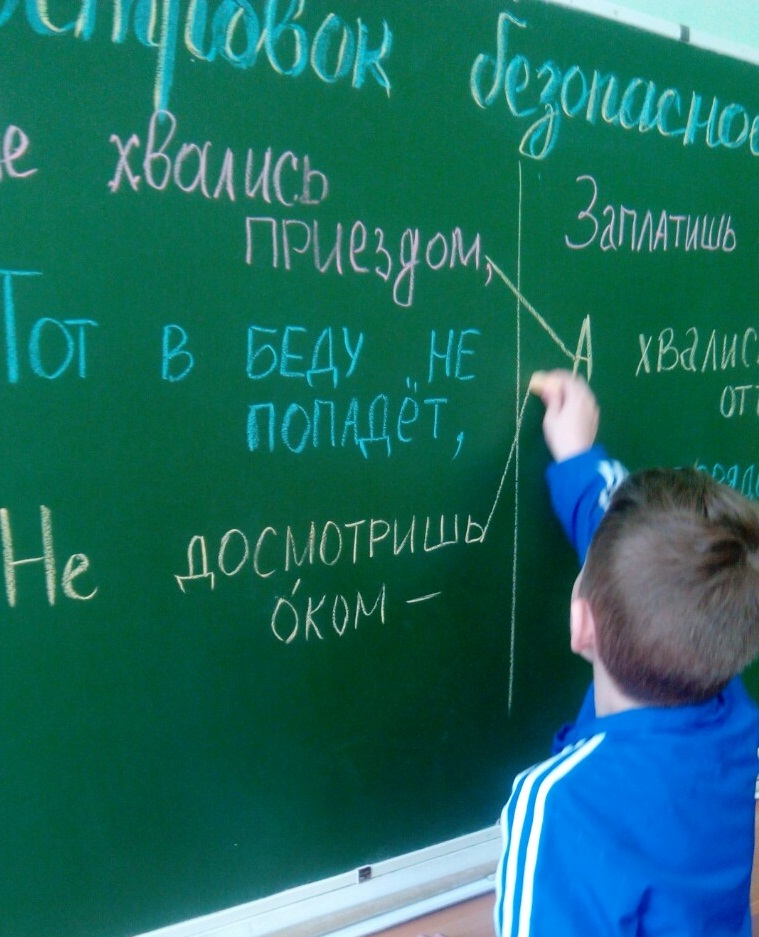 стровок безопаснос
е хвались
приездом,
Тот в беду не
попадёт,
Не досмотришь
о́ком –
Заплатишь
А хвалис
от